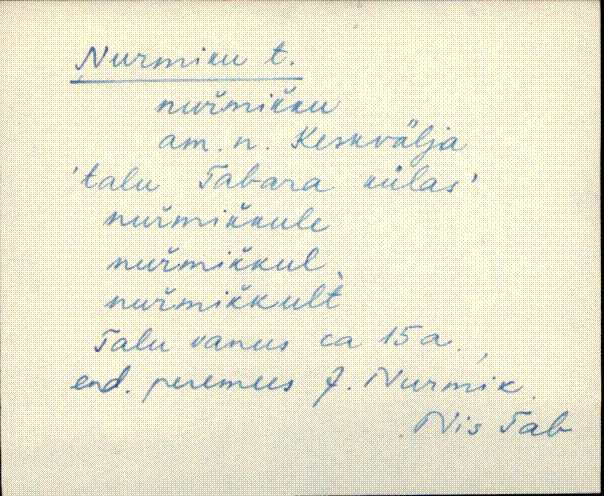 Nurmiku t.
nuřmikku
am. n. Keskvälja
'talu Tabara külas'
nuřmikkule
nuřmikkul
nuřmikkult
Talu vanus ca 15 a.,
end. peremees J. Nurmik.
Nis Tab